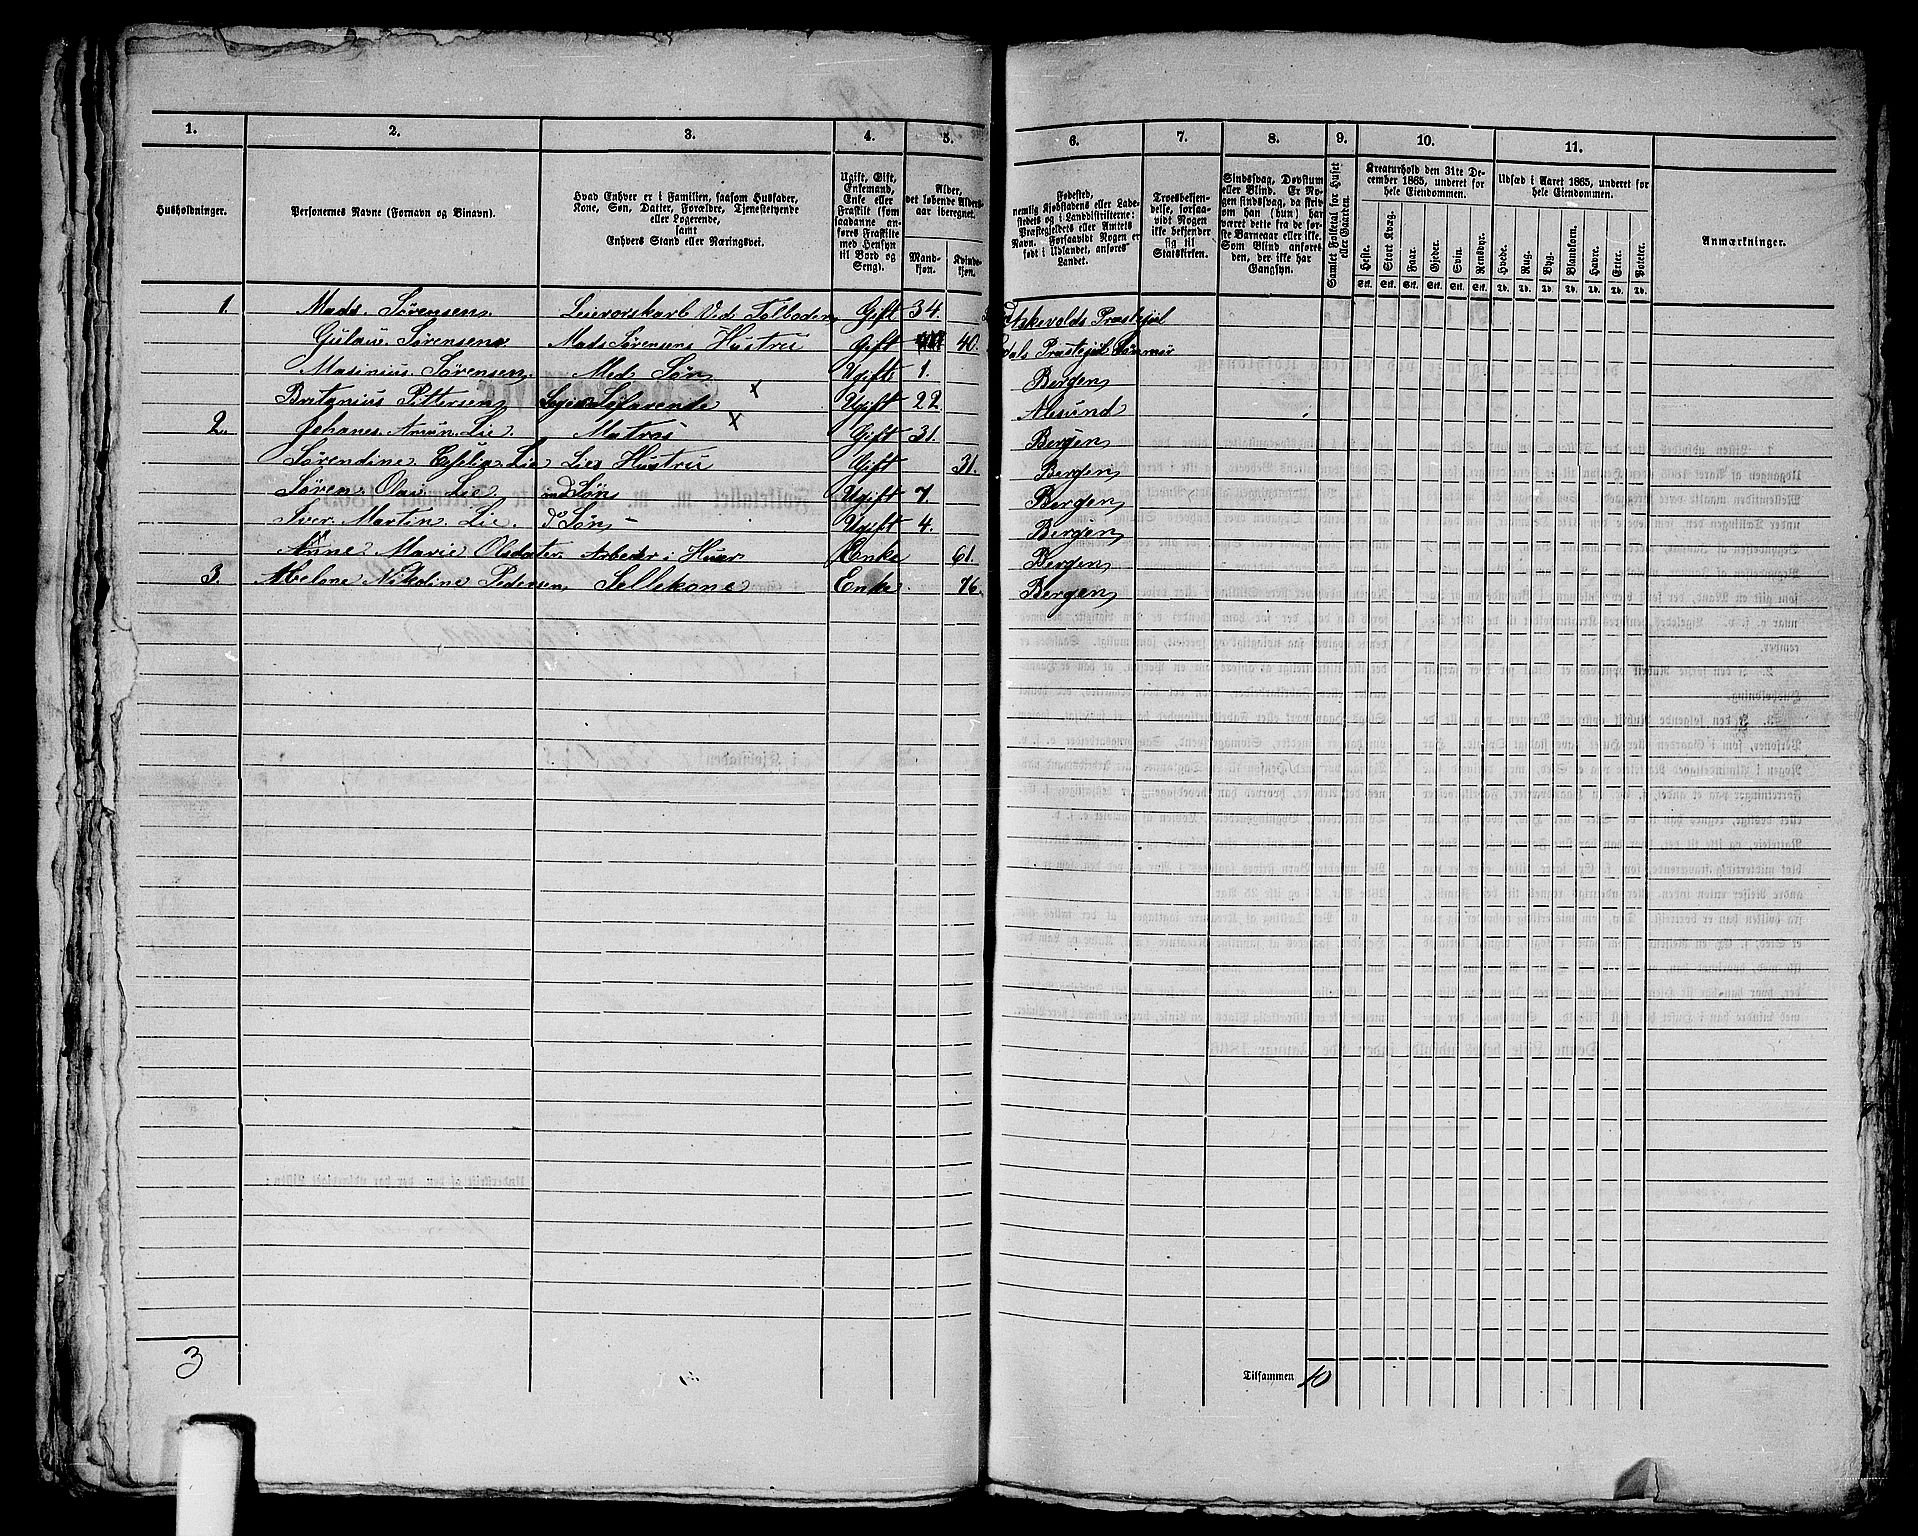 1. 2. 3. 4. 5. 6. 7. 8. 9. 10. 11.
Husholdninger.
Personernes Navne (Fornavn og Binavn).
Hvad Enhver er i Familien, saasom Husfader,
Kone, Søn, Datter, Forældre, Tjenestetyende
eller Logerende,
samt
Enhvers Stand eller Næringsvei.
Ugift, Gift,
Enkemand,
Enke eller
Fraskilt (som
saadanne an-
føres Fraskilte
med Hensyn
til Bord og
Seng).
Alder,
det løbende Alders-
aar iberegnet.
Mand-
kjøn.
Kvinde-
kjøn.
Fødested,
nemlig Kjøbstadens eller Lade-
stedets og i Landdistrikterne:
Præstegjeldets eller Amtets
Navn. Forsaavidt Nogen er
født i Udlandet, anføres
Landet.
Troesbekjen-
delse, forsaa-
vidt Nogen
ikke bekjender
sig til
Statskirken.
Sindssvag, Døvstum
eller Blind. Er No-
gen sindssvag, da skriv
om han (hun) har
været dette fra de før-
ste Barneaar eller ikke.
Som Blind anføres
den, der ikke har
Gangsyn.
Samlet Folketal for Huset
eller Gaarden.
Kreaturhold den 31te De-
cember 1865, underet for
hele Eiendommen.
Heste. Stort Kvæg. Faar. Gjeder. Svin. Rensdyr.
Stk. Stk. Stk. Stk. Stk. Stk.
Udsæd i Aaret 1865, underet for
hele Eiendommen.
Hvede. Rug. Byg. Blandkorn. Havre. Erter. Poteter.
Td. Td. Td. Td. Td. Td. Td.
Anmærkninger.
1. Mads Sørensen Ved Tolboden Gift 34. Askevolds Præstejel
Sørensen Mads Sørensens Hustru Gift 40. Præstejel Sønmør
Masinius Sørensen Med Søn Ugift 1. Bergen
Pittersen Søfarende x Ugift 22 Alesund
2. Johanes Lie Matros x Gift 31. Bergen
Sørendine Lie Lies Hustru Gift 31. Bergen
Søren Olai Lie Søn Ugift 7. Bergen
Iver Martin Lie do Søn Ugift 4. Bergen
Anne Marie Olsdater Arbeder i Huus Enke 61. Bergen
3. Nikoline Pedersen Sellekone Enke 76. Bergen
3
Tilsammen 10